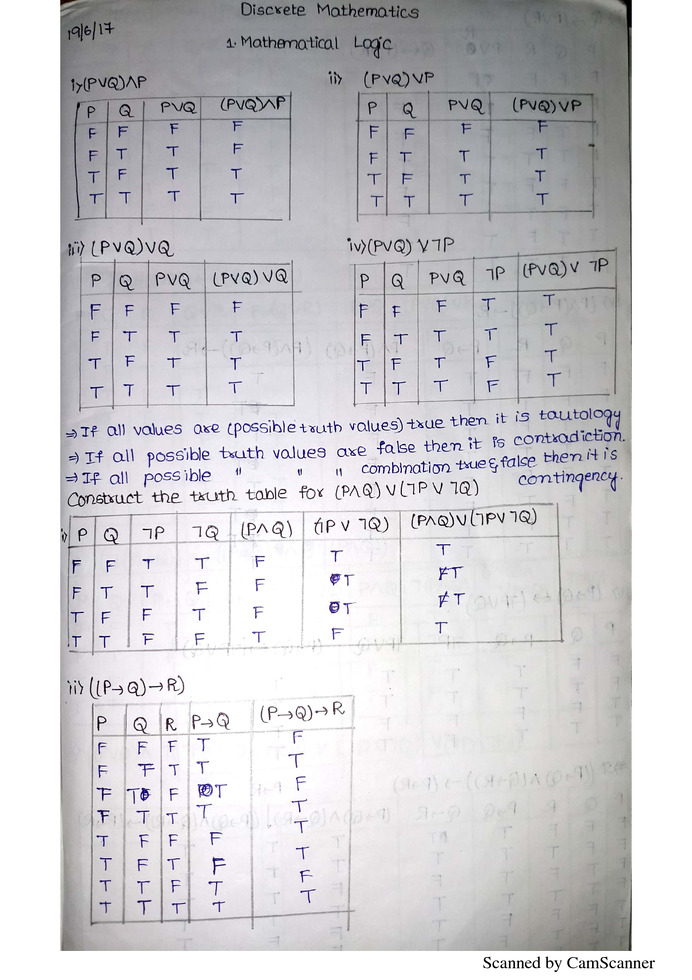 Discrete Mathematics
19/6/17
1. Mathematical Logic
i> (P∨Q)∧P
P Q P∨Q (P∨Q)∧P
F F F F
F T T F
T F T T
T T T T
ii> (P∨Q)∨P
P Q P∨Q (P∨Q)∨P
F F F F
F T T T
T F T T
T T T T
iii> (P∨Q)∨Q
P Q P∨Q (P∨Q)∨Q
F F F F
F T T T
T F T T
T T T T
iv> (P∨Q) ∨ ¬P
P Q P∨Q ¬P (P∨Q)∨ ¬P
F F F T T
F T T T T
T F T F T
T T T F T
⇒ If all values are (possible truth values) true then it is tautology
⇒ If all possible truth values are false then it is contradiction.
⇒ If all possible " " " combination true & false then it is
contingency.
Construct the truth table for (P∧Q) ∨ (¬P ∨ ¬Q)
i> P Q ¬P ¬Q (P∧Q) (¬P ∨ ¬Q) (P∧Q)∨(¬P∨¬Q)
F F T T F T T
F T T F F T T
T F F T F T T
T T F F T F T
ii> ((P→Q)→R)
P Q R P→Q (P→Q)→R
F F F T F
F F T T T
F T F T F
F T T T T
T F F F T
T F T F T
T T F T F
T T T T T
Scanned by CamScanner